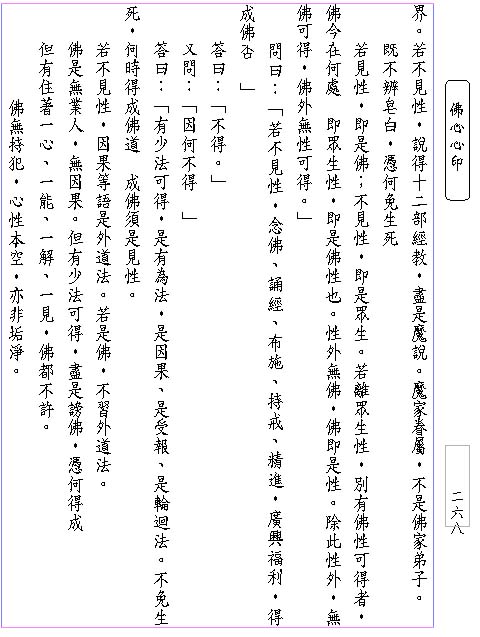 佛心心印
二六八
界。若不見性，說得十二部經教，盡是魔說。魔家眷屬，不是佛家弟子。
既不辨皂白，憑何免生死
若見性，即是佛；不見性，即是眾生。若離眾生性，別有佛性可得者，
佛今在何處　即眾生性，即是佛性也。性外無佛，佛即是性。除此性外，無
佛可得，佛外無性可得。」
問曰：「若不見性，念佛、誦經、布施、持戒、精進，廣興福利，得
成佛否　」
答曰：「不得。」
又問：「因何不得　」
答曰：「有少法可得，是有為法，是因果、是受報、是輪迴法。不免生
死，何時得成佛道　成佛須是見性。
若不見性，因果等語是外道法。若是佛，不習外道法。
佛是無業人，無因果。但有少法可得，盡是謗佛，憑何得成
但有住著一心、一能、一解、一見，佛都不許。
佛無持犯，心性本空，亦非垢淨。